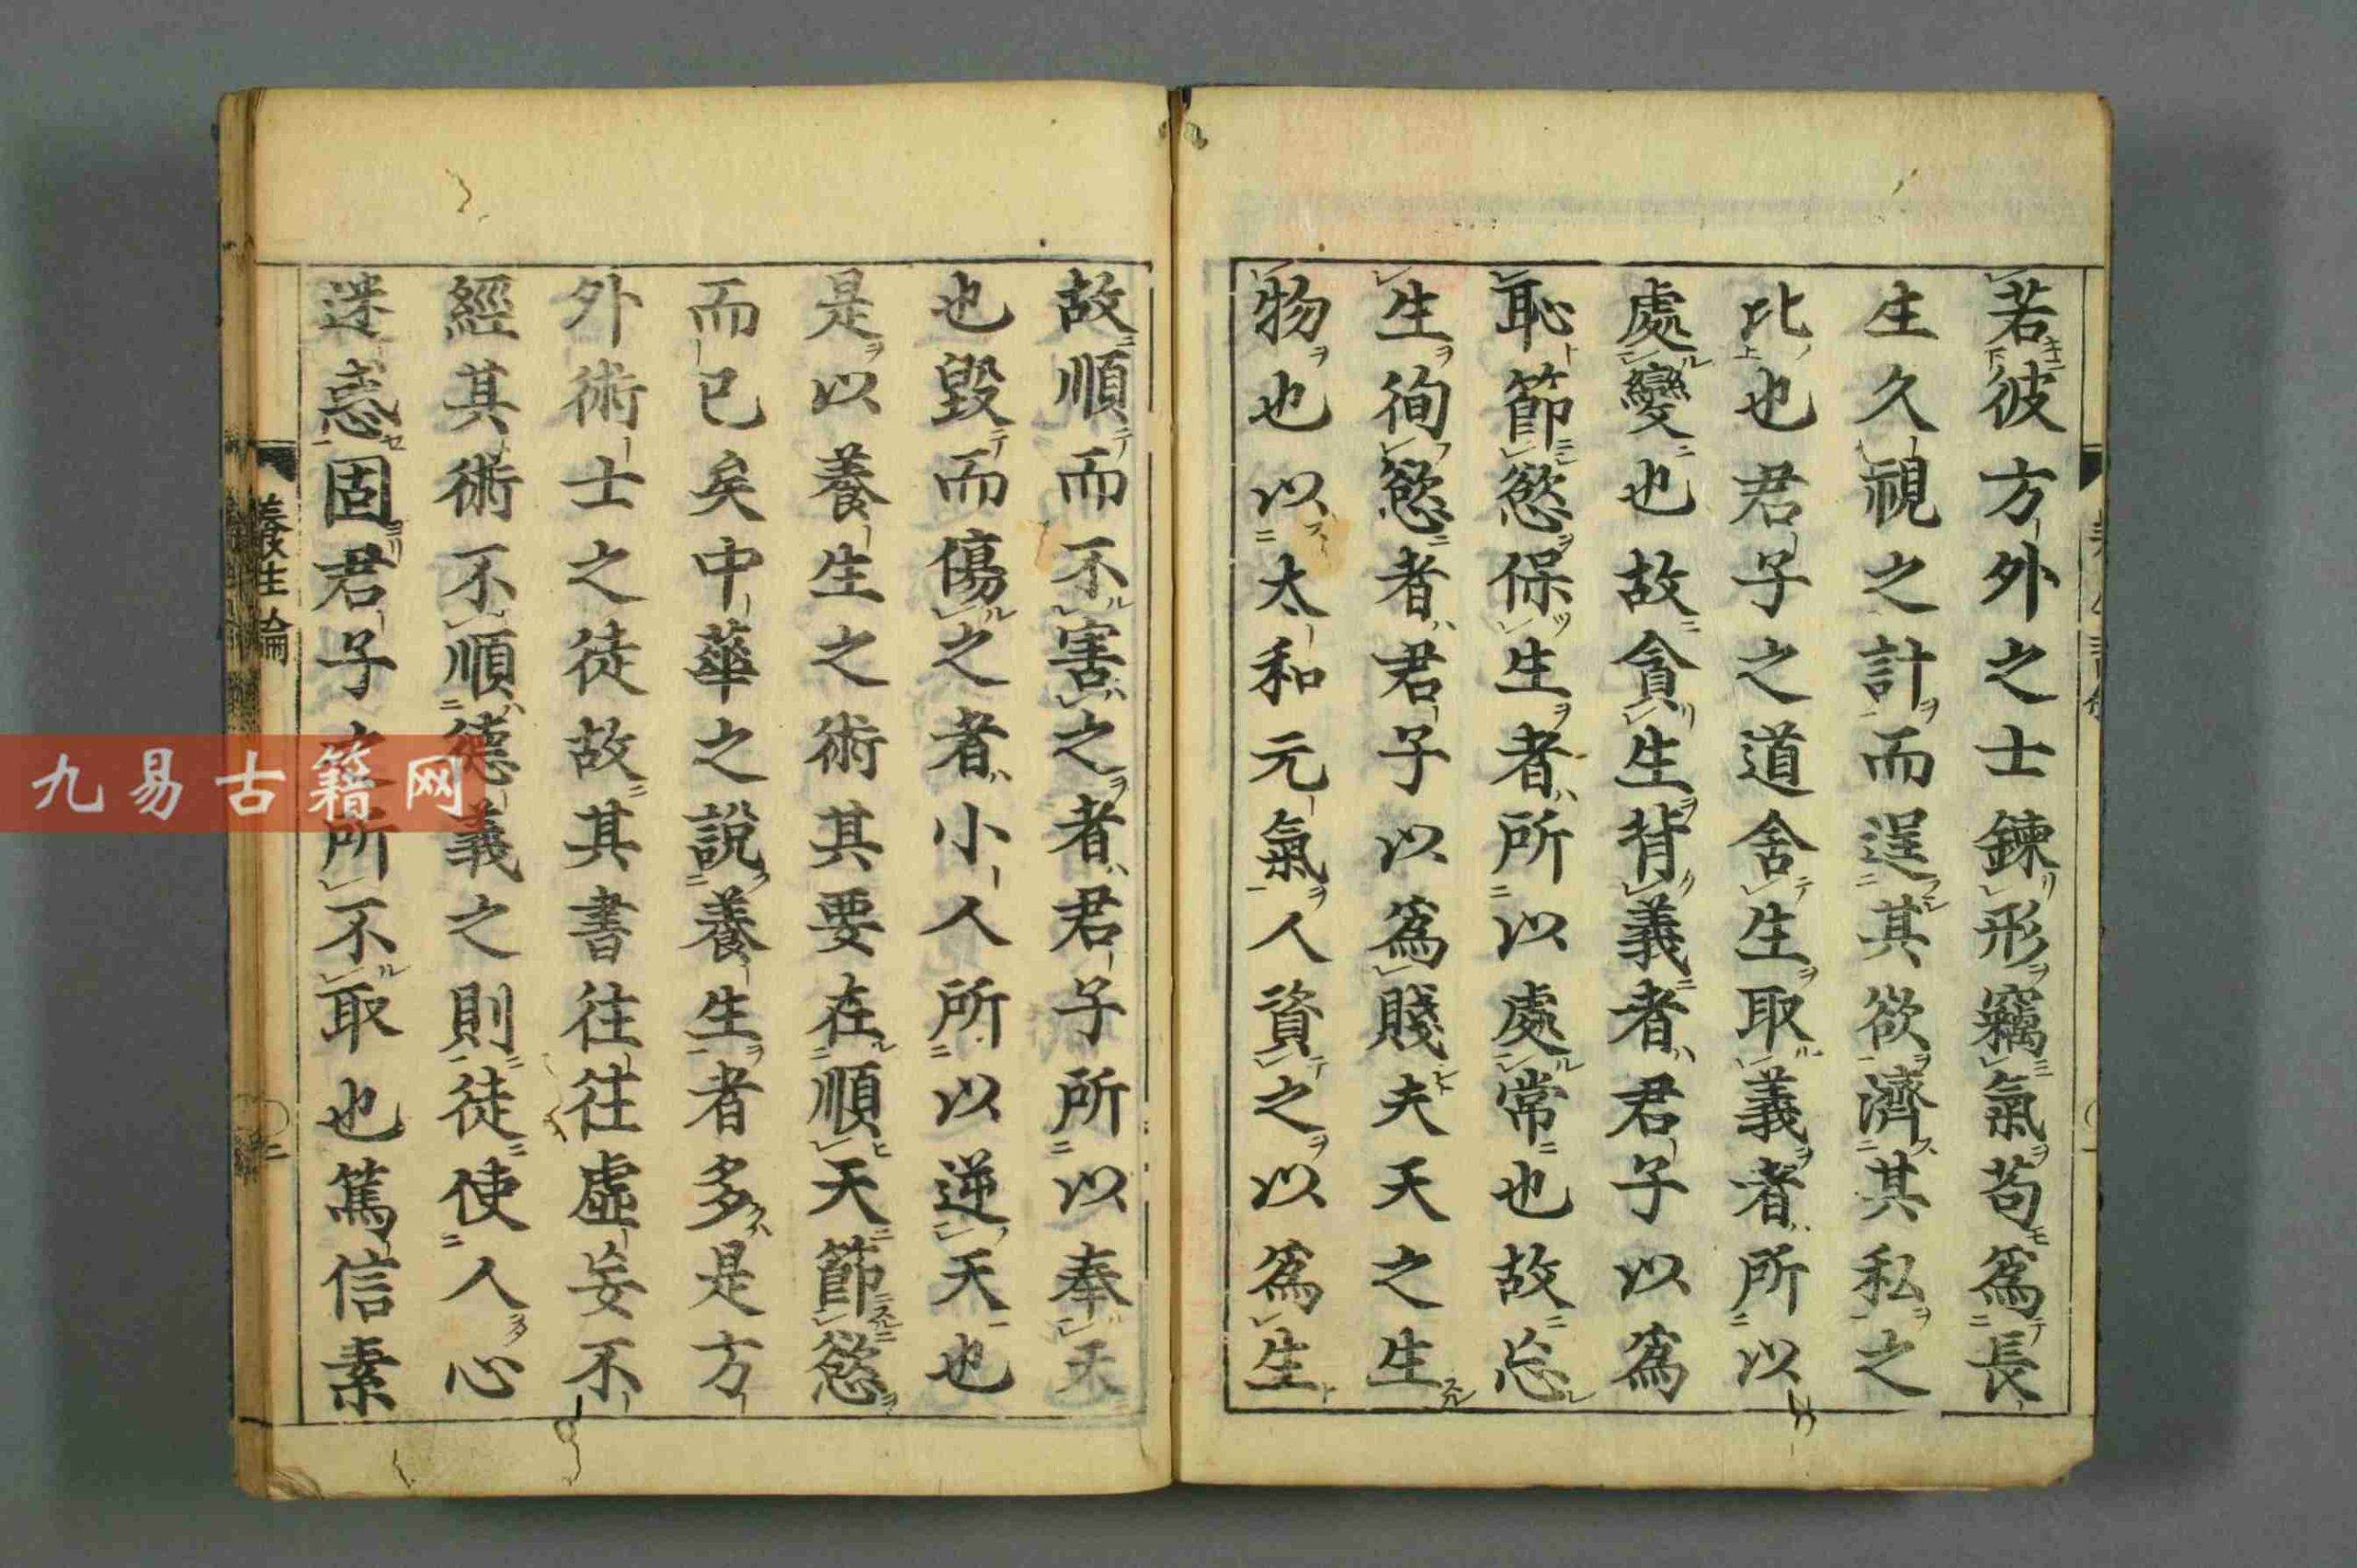 若彼方外之士鍊形竊氣苟爲長
生久視之計而逞其欲濟其私之
比也君子之道舍生取義者所以
處變也故貪生背義者君子以爲
恥節慾保生者所以處常也故忘
生徇慾者君子以爲賤夫天之生
物也以太和元氣人資之以爲生
故順而不害之者君子所以奉天
也毀而傷之者小人所以逆天也
是以養生之術其要在順天節慾
而已矣中華之說養生者多是方
外術士之徒故其書往往虛妄不
經其術不順德義之則徒使人心
迷惑固君子之所不取也篤信素
養生論
二
九易古籍网